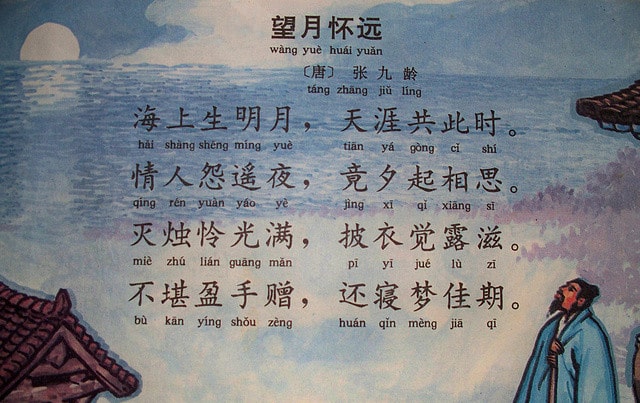 望月怀远
wàng yuè huái yuǎn
〔唐〕 张九龄
táng zhāng jiǔ líng
海上生明月，天涯共此时。
hǎi shàng shēng míng yuè tiān yá gòng cǐ shí
情人怨遥夜，竟夕起相思。
qíng rén yuàn yáo yè jìng xī qǐ xiāng sī
灭烛怜光满，披衣觉露滋。
miè zhú lián guāng mǎn pī yī jué lù zī
不堪盈手赠，还寝梦佳期。
bù kān yíng shǒu zèng huán qǐn mèng jiā qī